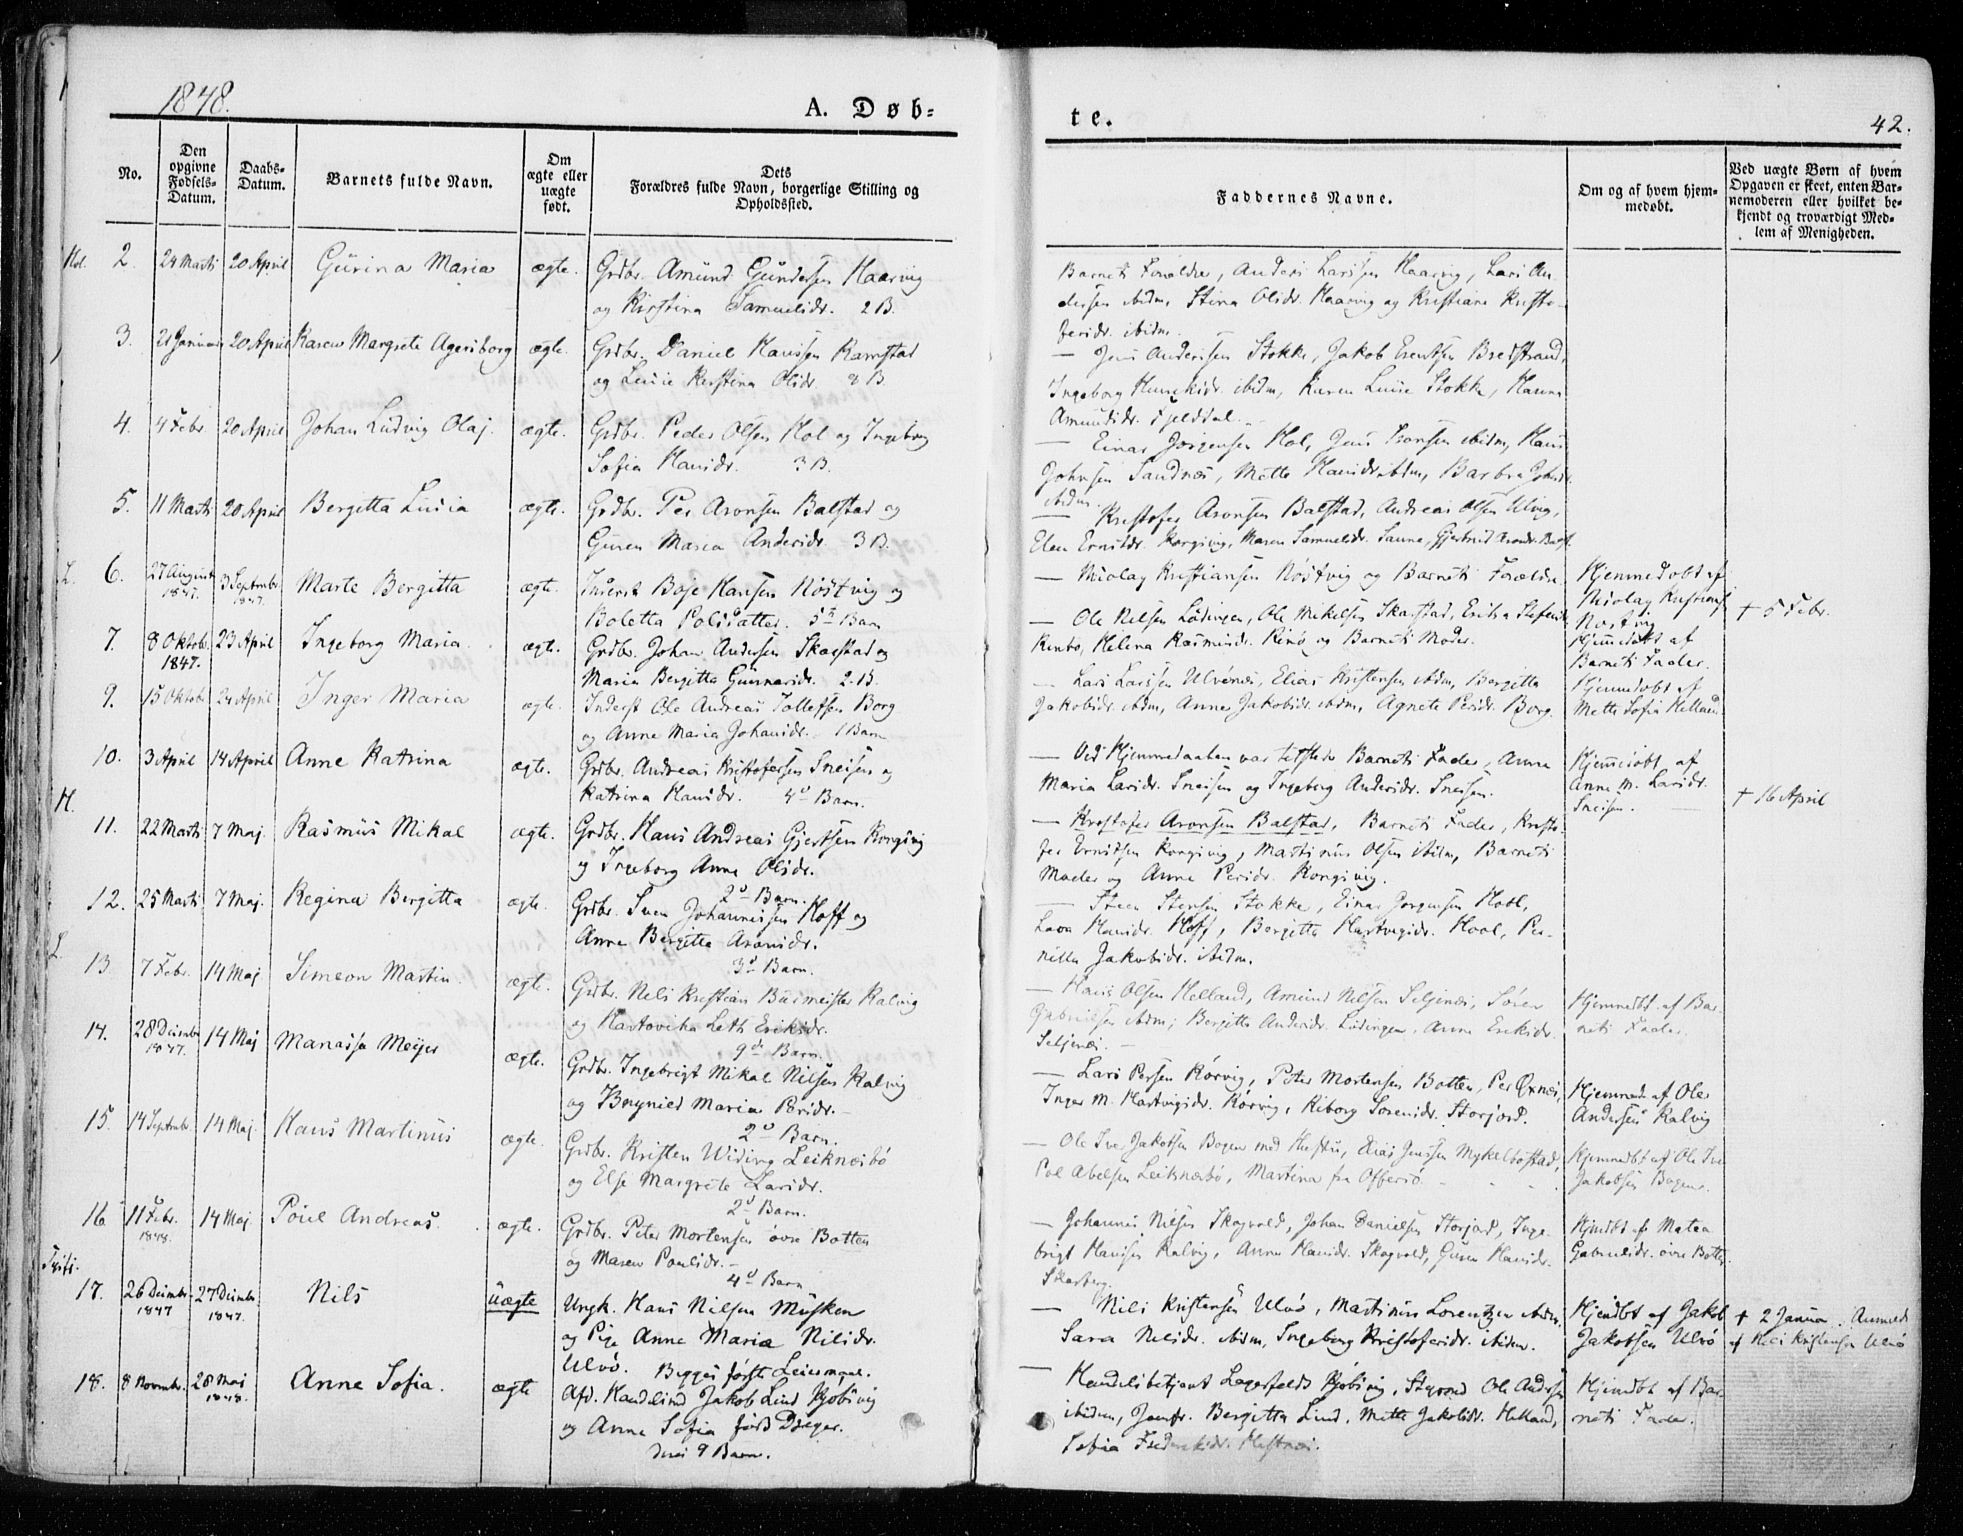 1848.
A. Døb=
te.
42.
No.
Den opgivne Fødsels-Datum.
Daabs-Datum.
Barnets fulde Navn.
Om ægte eller uægte født.
Dets Forældres fulde Navn, borgerlige Stilling og Opholdssted.
Faddernes Navne.
Om og af hvem hjemmedøbt.
Ved uægte Børn af hvem Opgaven er skeet, enten Barnemoderen eller hvilket bekjendt og troværdigt Medlem af Menigheden.
Hol. 2. 24 Marti 20 April Gurina Maria ægte. Grdbr. Amund Gundersen Haarvig
og Kirstina Samuelsdr. 2 B.
Barnets Forældre, Anders Larssen Haarvig, Lars An-
dersen ibidm, Stina Olsdr. Haarvig og Kristiane Kristo-
fersdr. ibidm.
3. 21 Januar 20 April Karen Margrete Agersborg ægte. Grdbr. Daniel Hanssen Ramstad
og Lucie Kirstina Olsdr. 8 B.
— Jens Anderssen Stokke, Jakob Evertsen Bredstrand,
Ingeborg Henriksdr. ibidm, Karen Lucie Stokke, Hanna
Amundsdr. Fjeldtal.
4. 4 Febr. 20 April Johan Ludvig Olaj. ægte. Grdbr. Peder Olsen Hol og Ingeborg
Sofia Hansdr. 3 B.
— Einar Jørgensen Hol, Jens Aronsen ibidm, Hans
Johnsen Sandnæs, Mette Hansdr. ibidm, Barbra Johnsdr.
ibidm.
5. 11 Marti 20 April Bergitta Lucia ægte. Grdbr. Per Aronsen Balstad og
Guren Maria Andersdr. 3 B.
— Kristofer Aronsen Balstad, Andreas Olsen Ulvig,
Elen Ernstdr. Kongsvig, Maren Samuelsdr. Sanne, Gjertrud Aronsdr. Balst.
L. 6. 27 August 1847. 3 Septembr. 1847. Marte Bergitta ægte. Inderst Boje Hansen Nöstvig og
Boletta Polsdatter. 5te Barn
— Nicolay Kristiansen Nöstvig og Barnets Forældre
Hjemmedøbt af
Nicolay Kristians.
Nöstvig
† 5 Febr.
7. 8 Oktobr. 1847. 23 April Ingeborg Maria. ægte. Grdbr. Johan Andersen Skarstad og
Maria Bergitta Gunnarsdr. 2. B.
— Ole Nilsen Lödingen, Ole Mikelsen Skarstad, Erika Stefensdr.
Rinbö, Helena Rasmusdr. Rinö og Barnets Moder.
Hjemmedøbt af
Barnets Fader.
9. 15 Oktobr. 24 April Inger Maria ægte. Inderst Ole Andreas Tollefsen Borg
og Anne Maria Johansdr. 1 Barn
— Lars Larssen Ulvönæs, Elias Kristensen ibidm, Bergitta
Jakobsdr. ibidm, Anne Jakobsdr. ibidm, Agnete Persdr. Borg.
Hjemmedøbt af
Mette Sofia Helland.
10. 3 April 14 April Anne Katrina ægte. Grdbr. Andreas Kristofersen Sneisen og
Katrina Hansdr. 4d Barn.
— Ved Hjemmedaaben var tilstede Barnets Fader, Anne
Maria Larsdr. Sneisen og Ingeborg Andersdr. Sneisen.
Hjemmedøbt af
Anne M. Larsdr.
Sneisen.
† 16 April
H.
11. 22 Marti 7 Maj Rasmus Mikal ægte. Grdbr. Hans Andreas Gjertsen Kongsvig
og Ingeborg Anne Olsdr.
2d Barn.
— Kristofer Aronsen Balstad, Barnets Fader, Kristo-
fer Ernstsen Kongsvig, Martinus Olsen ibidm, Barnets
Moder og Anne Persdr. Kongsvig.
12. 25 Marti 7 Maj. Regina Bergitta ægte. Grdbr. Sven Johannessen Hoff og
Anne Bergitta Aronsdr.
3d Barn.
— Steen Stensen Stokke, Einar Jørgensen Hool,
Lava Hansdr. Hoff, Bergitta Hartvigsdr. Hool, Per-
nille Jakobsdr. ibidm.
L. 13. 7 Febr. 14 Maj Simeon Martin ægte. Grdbr. Nels Kristian Burmeister Kalvig
og Hartovika Leth Eriksdr.
9de Barn.
— Hans Olsen Helland, Amund Nilsen Seljenæs, Sören
Gabrielsen ibidm, Bergitta Andersdr. Lödingen, Anne Eriksdr.
Seljenæs.
Hjemmedbt af Bar-
nets Fader.
14. 28 Decembr. 1847. 14 Maj Manassa Meyer ægte. Grdbr. Ingebrigt Mikal Nilsen Kalvig
og Brynild Maria Persdr.
2d Barn.
— Lars Persen Körvig, Peter Mortensen Botten, Per Öxnæs,
Inger M. Hartvigsdr. Körvig, Kiborg Sorensdr. Storjord.
Hjemmed af Ole
Andersen Kalvig
15. 14 Septembr. 14 Maj. Hans Martinus ægte. Grdbr. Kristen Widing Leiknæsbö
og Else Margrete Larsdr.
2d Barn.
— Ole Iver Jakobsen Bogen med Hustru, Elias Jenssen Mykelbostad,
Pol Abelsen Leiknæsbö, Martina fra Offersö.
Hjemmedbt af Ole Iver
Jakobsen Bogen.
16 11 Febr. 1848. 14 Maj. Poul Andreas. ægte. Grdbr. Peter Mortensen övre Botten
og Maren Poulsdr.
4d Barn
— Johannes Nilsen Skogvold, Johan Danielsen Storjord, Inge-
brigt Hanssen Kalvig, Anne Hansdr. Skogvold, Guren Hansdr.
Skarberg.
Hjmdbt af Matea
Gabrielsdr. övre Botten
17. 26 Decembr. 1847 27 Decembr. 1847. Nils uægte Ungk. Hans Nilsen Musken
og Pige Anne Maria Nilsdr.
Ulvö. Begges første Leiermaal.
— Nils Kristensen Ulvö, Martinus Lorentzen ibidm,
Sara Nelsdr. ibidm, Ingeborg Kristofersdr. ibidem.
Hjemdbt af Jakob
Jakobsen Ulvö
† 2 Januar. Anmeldt
af Nils Kristensen Ulvö
18. 8 Novembr. 28 Maj 1848. Anne Sofia. ægte Afd. Handelsmd Jakob Lind Kjöbsvig
og Anne Sofia født Dreyer.
deres 9 Barn.
— Handelsbetjent Lagerfeldt Kjöbsvig, Styrmd Ole Andersen
ibidem, Jomfr. Bergitta Lind, Mette Jakobsdr. Helland,
Sofia Frederiksdr. Hestnæs.
Hjemdbt af Bar-
nets Fader.